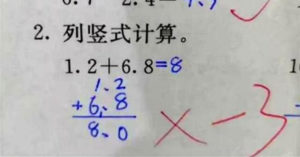 2. 列竖式计算。
1.2+6.8=8
1.2
+6.8
8.0
× -3